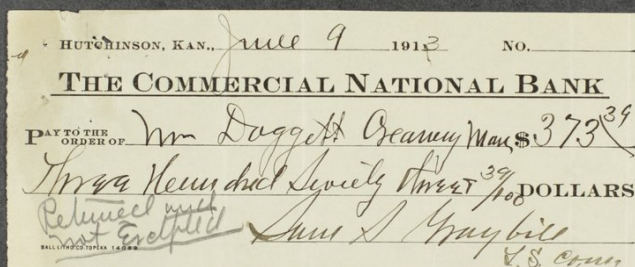 HUTCHINSON, KAN., June 9 1913 NO.
THE COMMERCIAL NATIONAL BANK
PAY TO THE ORDER OF Wm Doggett Creamery Man, $ 373 39
Three Hundred Seventy three 39/100 DOLLARS
Returned and
not Excepted
Sam S Graybill
BALL LITHO. CO. TOPEKA